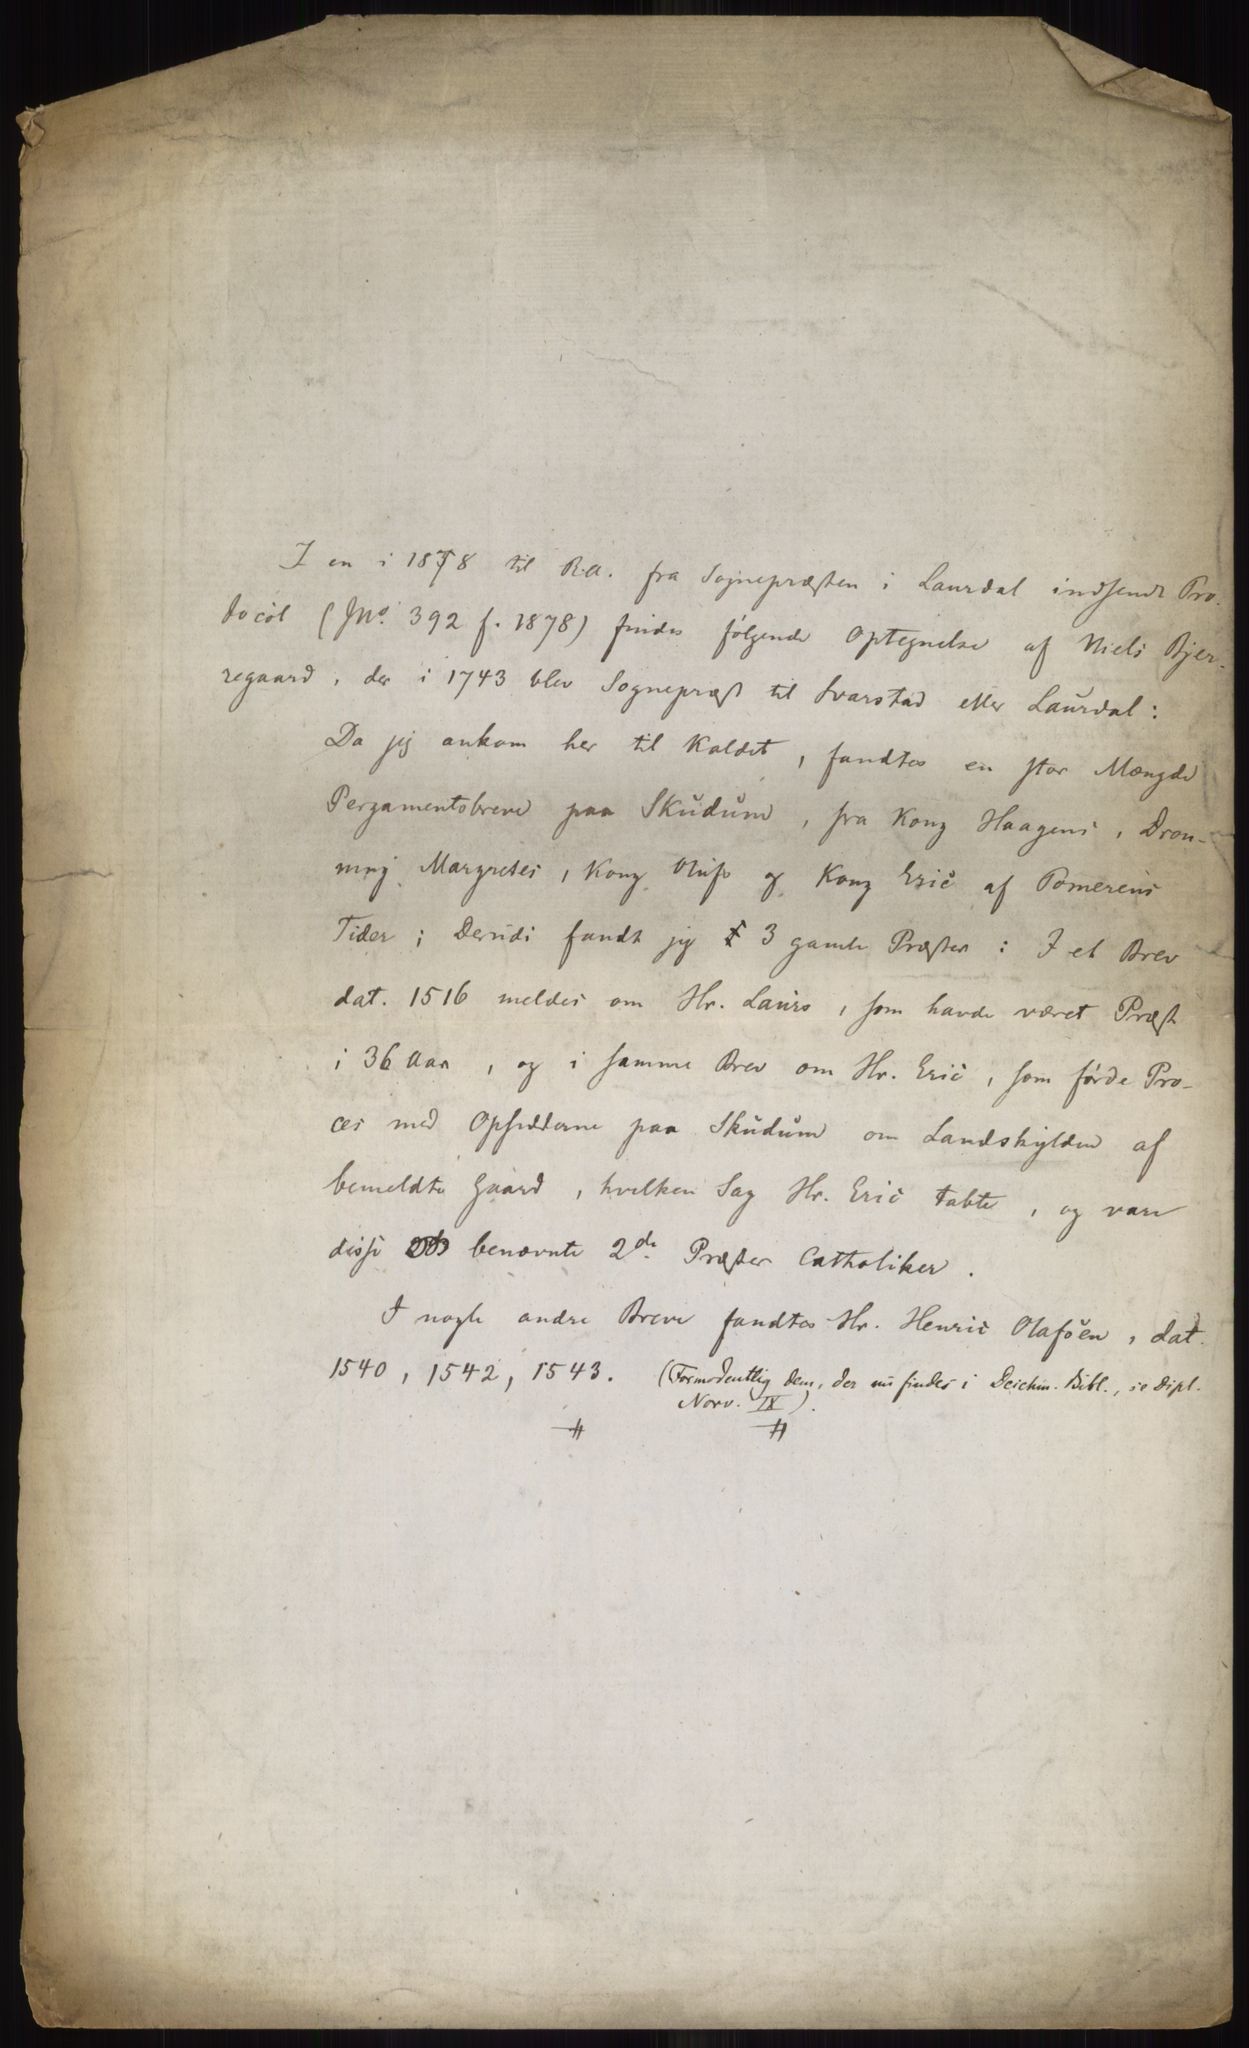 I en i 1878 til R.A. fra Sognepræsten i Laurdal indsendt Pro-
tocol (JNo. 392 f. 1878) findes følgende Optegnelse af Niels Bjer-
regaard, der i 1743 blev Sognepræst til Svarstad eller Laurdal:
Da jeg ankom her til Kaldet, fandtes en stor Mængde
Pergamentsbreve paa Skudum, fra Kong Haagens, Dron-
ning Margretes, Kong Olufs og Kong Eric af Pomerens
Tider; Deriidi fandt jeg 3 gamle Præster: I et Brev
dat. 1516 meldes om Hr. Laurs, som havde været Præst
i 36 Aar, og i samme Brev om Hr. Eric, som førde Pro-
ces med Opsidderne paa Skudum om Landskylden af
bemeldte Gaard, hvilken Sag Hr. Eric tabte, og vare
disse benævnte 2de Præster Catholiker.
I nogle andre Breve fandtes Hr. Henric Olafsen, dat.
1540, 1542, 1543. (Formodentlig dem, der nu findes i Deichm. Bibl., se Dipl.
Norv. IX).